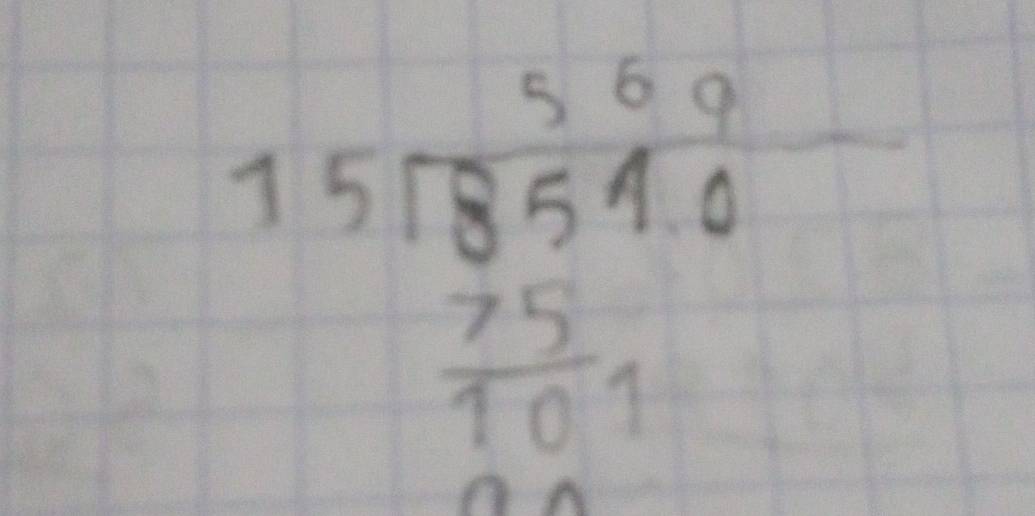 569
15 8510
75
101